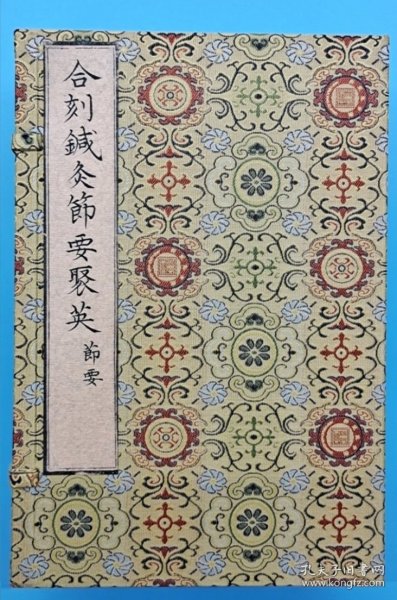 合刻鍼灸節要聚英
節要
孔夫子旧书网
www.kongfz.com